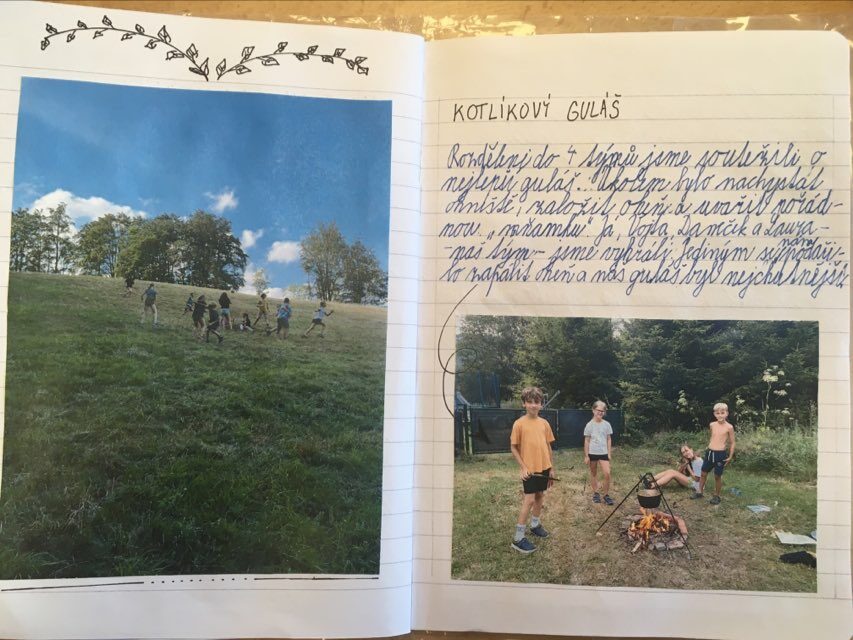 KOTLÍKOVÝ GULÁŠ
Rozděleni do 4 týmů jsme soutěžili o
nejlepší guláš. Úkolem bylo nachystat
ohniště, založit oheň a uvařit pořád-
nou „mňamku". Já, Vojta, Dančik a Laura-
-náš tým- jsme vyhráli. Jediným se nám podaři-
lo zapálit oheň a náš guláš byl nejchutnější.